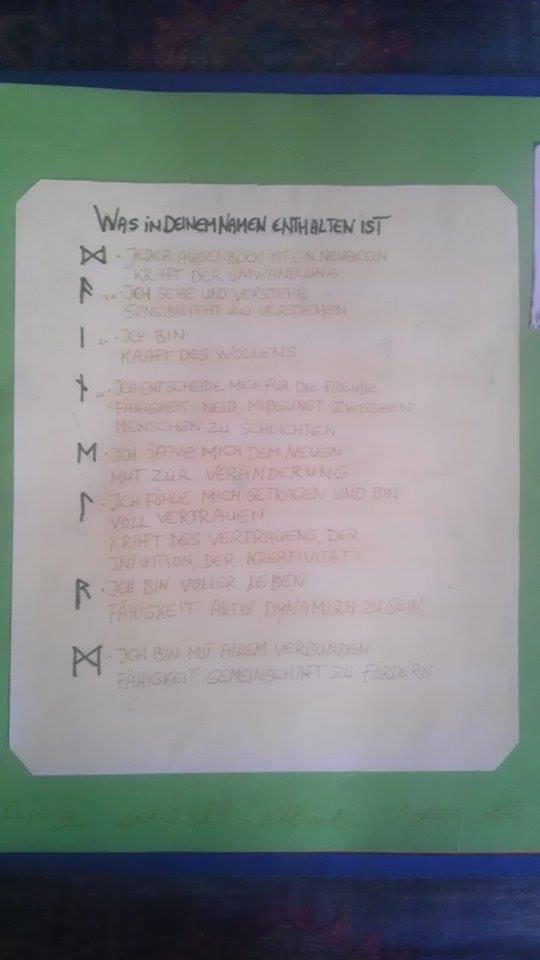 WAS IN DEINEM NAMEN ENTHALTEN IST
ᛞ · JEDER AUGENBLICK IST EIN NEUBEGIN
KRAFT DER UMWANDLUNG
ᚨ 2x · ICH SEHE UND VERSTEHE
SENSIBILITÄT ZU VERSTEHEN
ᛁ 2x · ICH BIN
KRAFT DES WOLLENS
ᚾ 2x · ICH ENTSCHEIDE MICH FÜR DIE FREUDE
FÄHIGKEIT NEID MIßGUNST ZWISCHEN
MENSCHEN ZU SCHLICHTEN
ᛖ · ICH ÖFFNE MICH DEM NEUEN
MUT ZUR VERÄNDERUNG
ᛚ · ICH FÜHLE MICH GETRAGEN UND BIN
VOLL VERTRAUEN
KRAFT DES VERTRAUENS, DER
INTUITION, DER KREATIVITÄT
ᚱ · ICH BIN VOLLER LEBEN
FÄHIGKEIT AKTIV, DYNAMISCH ZU SEIN
ᛗ · ICH BIN MIT ALLEM VERBUNDEN
FÄHIGKEIT GEMEINSCHAFT ZU FÖRDERN